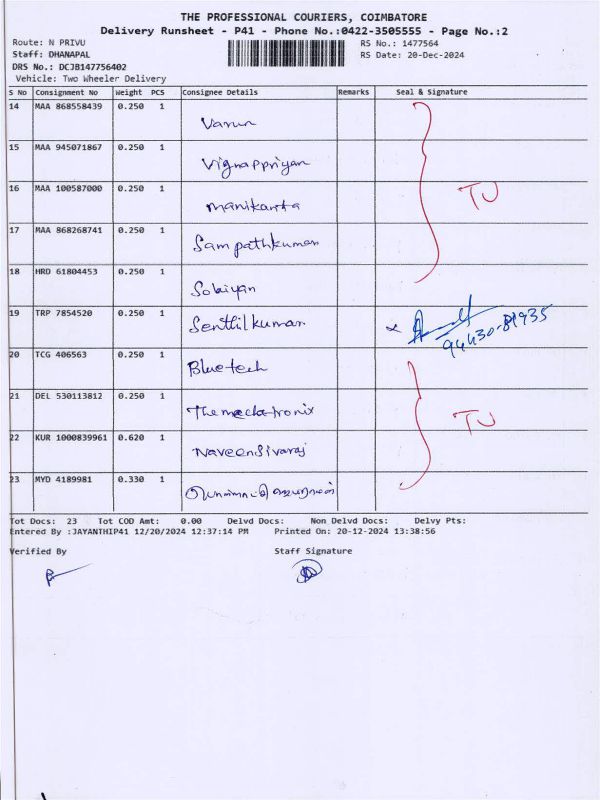 THE PROFESSIONAL COURIERS, COIMBATORE
Delivery Runsheet - P41 - Phone No.:0422-3505555 - Page No.:2
Route: N PRIVU
RS No.: 1477564
Staff: DHANAPAL
RS Date: 20-Dec-2024
DRS No.: DCJB147756402
Vehicle: Two Wheeler Delivery
S No Consignment No Weight PCS Consignee Details Remarks Seal & Signature
14 MAA 868558439 0.250 1
Varun
15 MAA 945071867 0.250 1
Vignappriyan
16 MAA 100587000 0.250 1
Manikanta
TU
17 MAA 868268741 0.250 1
Sampathkumar
18 HRD 61804453 0.250 1
Sobiyan
19 TRP 7854520 0.250 1
Senthilkumar
94430-81935
20 TCG 406563 0.250 1
Bluetech
21 DEL 530113812 0.250 1
Themechatronix
TU
22 KUR 1000839961 0.620 1
NaveenSivaraj
23 MYD 4189981 0.330 1
Tot Docs: 23 Tot COD Amt: 0.00 Delvd Docs: Non Delvd Docs: Delvy Pts:
Entered By :JAYANTHIP41 12/20/2024 12:37:14 PM Printed On: 20-12-2024 13:38:56
Verified By Staff Signature